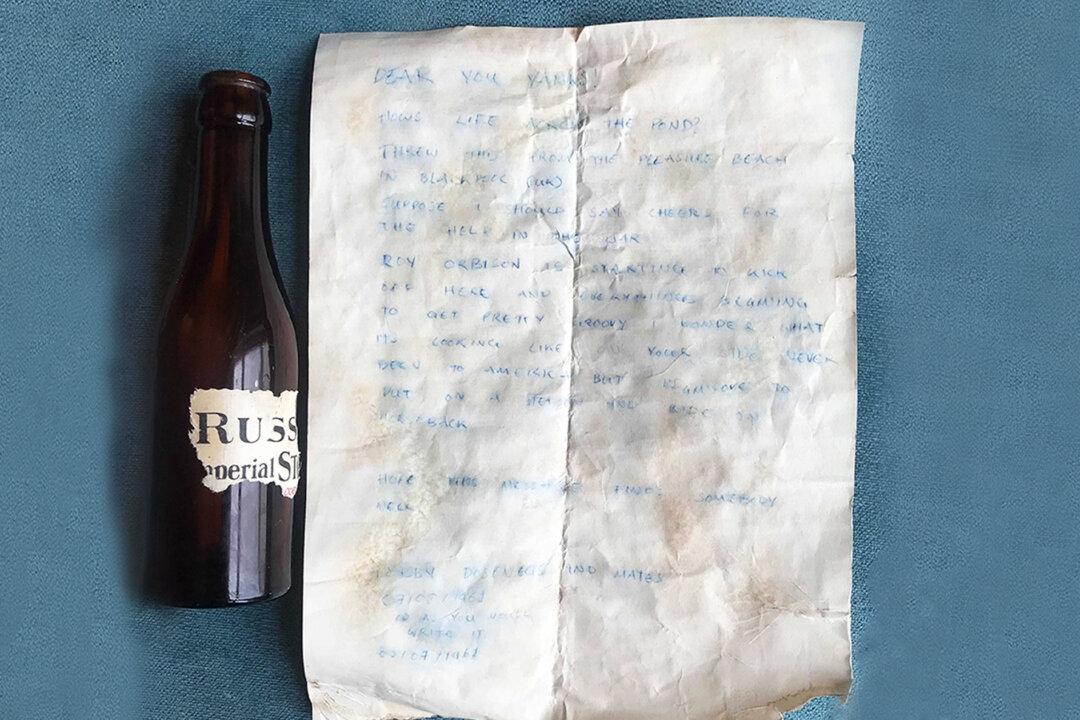 RUSS
mperial ST
DEAR YOU YANKS!
HOWS LIFE ACROSS THE POND?
THREW THIS FROM THE PLEASURE BEACH
IN BLACKPOOL (UK)
SUPPOSE I SHOULD SAY CHEERS FOR
THE HELP IN THE WAR
ROY ORBISON IS STARTING TO KICK
OFF HERE AND BEGINING
TO GET PRETTY GROOVY I WONDER WHAT
ITS LOOKING LIKE YOUR SIDE NEVER
BEEN TO BUT TO
PUT ON A STETSON AND RIDE ON
HORSEBACK
HOPE THIS MESSAGE FINDS SOMEBODY
WELL
AND MATES
OR AS YOU WOULD
WRITE IT